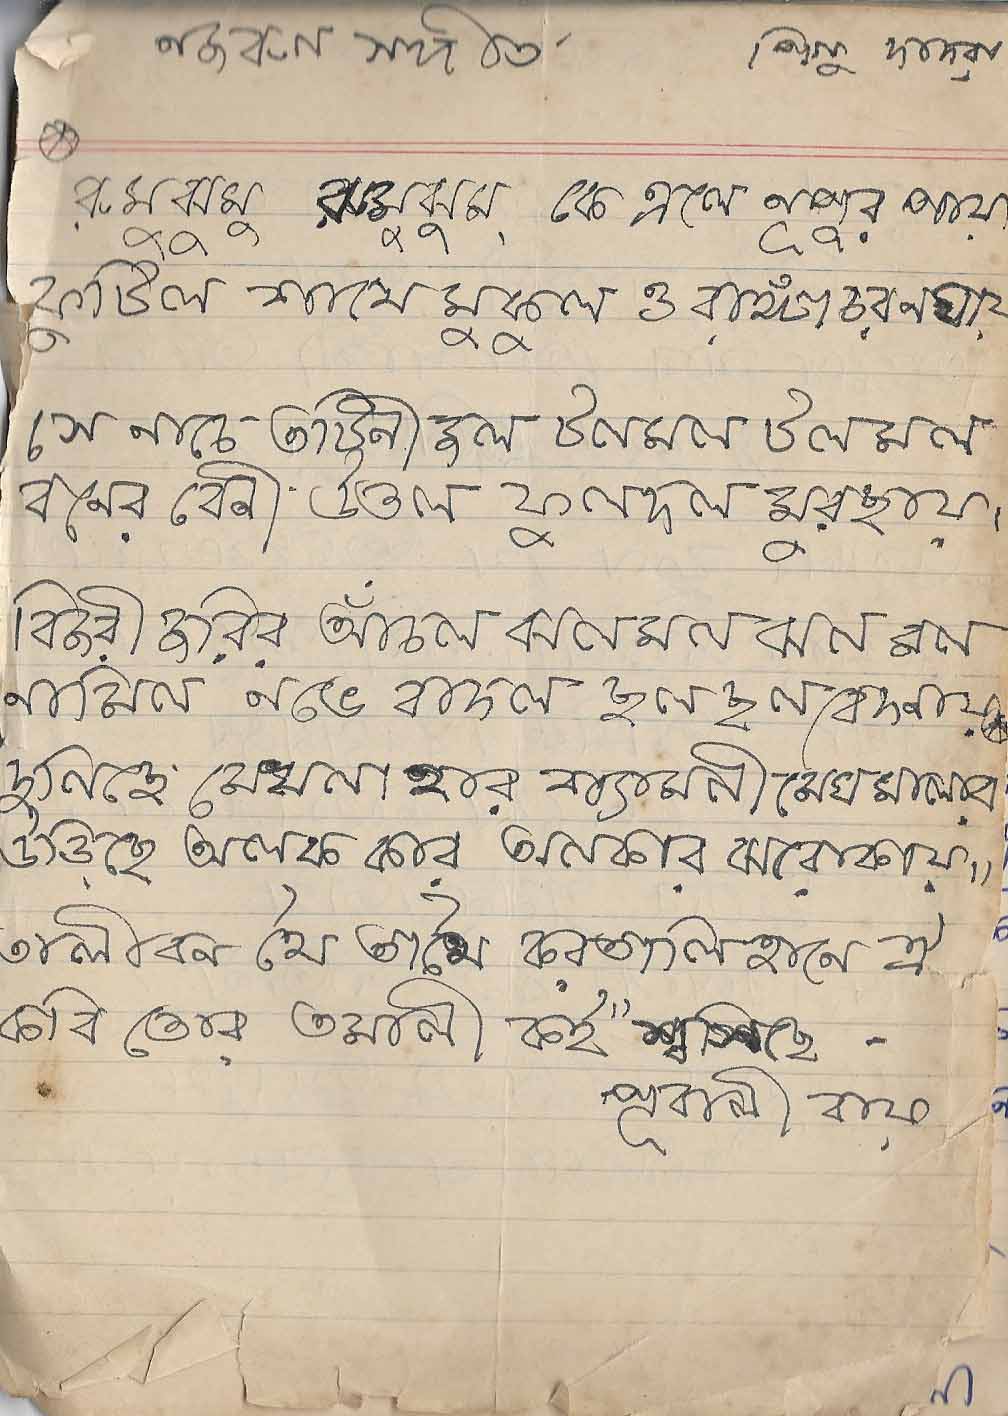 নজরুল সঙ্গীত
পিলু দাদরা
রুমুঝুমু রুমুঝুমু কে এলে নূপুর পায়
ফুটিল শাখে মুকুল ও রাঙা চরন ঘায়
সে নাচে তটিনী জল টলমল টলমল
বনের বেনী উতল ফুলদল মুরছায়।
বিজরী জরির আঁচল ঝলমল ঝলমল
নামিল নভে বাদল ছলছল বেদনায়
দুলিছে মেখলা হার শ্যামলী মেঘমালার
উড়িছে অলক কার অলকার ঝরোকায়॥
তালীবন থৈ তাথৈ করতালি হানে ঐ
কবি তোর তমালী কই" শ্বসিছে -
পূবালী বায়